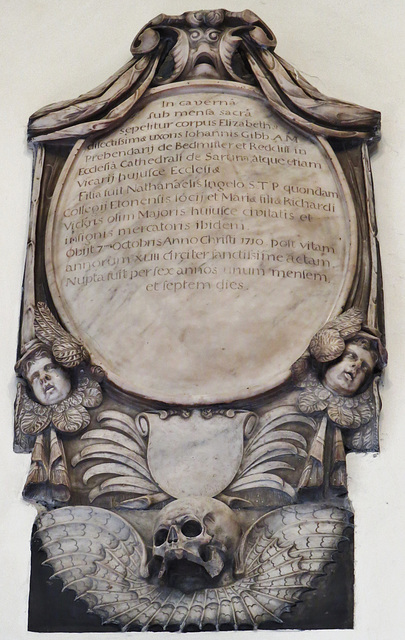 In cavernâ
sub mensa sacrâ
sepelitur corpus Elizabethæ
dilectissimæ uxoris Iohannis Gibb A.M.
Prebendarij de Bedmister et Redclist in
Ecclesiâ Cathedrali de Sarum atque etiam
Vicarij hujusce Ecclesiæ
Filia fuit Nathanaelis Ingelo S.T.P. quondam
Collegij Etonensis socij et Mariæ filiæ Richardi
Vickris olim Majoris hujusce civitatis et
mercatoris ibidem
Obijt 7mo Octobris Anno Christi 1710 post vitam
annorum XLIII circiter sanctissime actam
Nupta fuit per sex annos unum mensem,
et septem dies.